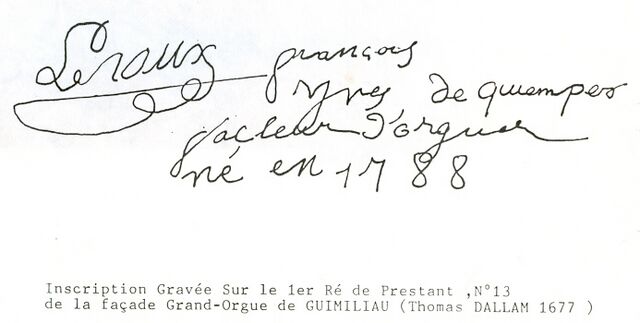 Leroux françois
yves de quemper
facteur d'orgues
né en 1788
Inscription Gravée Sur le 1er Ré de Prestant ,N°13
de la façade Grand-Orgue de GUIMILIAU (Thomas DALLAM 1677 )